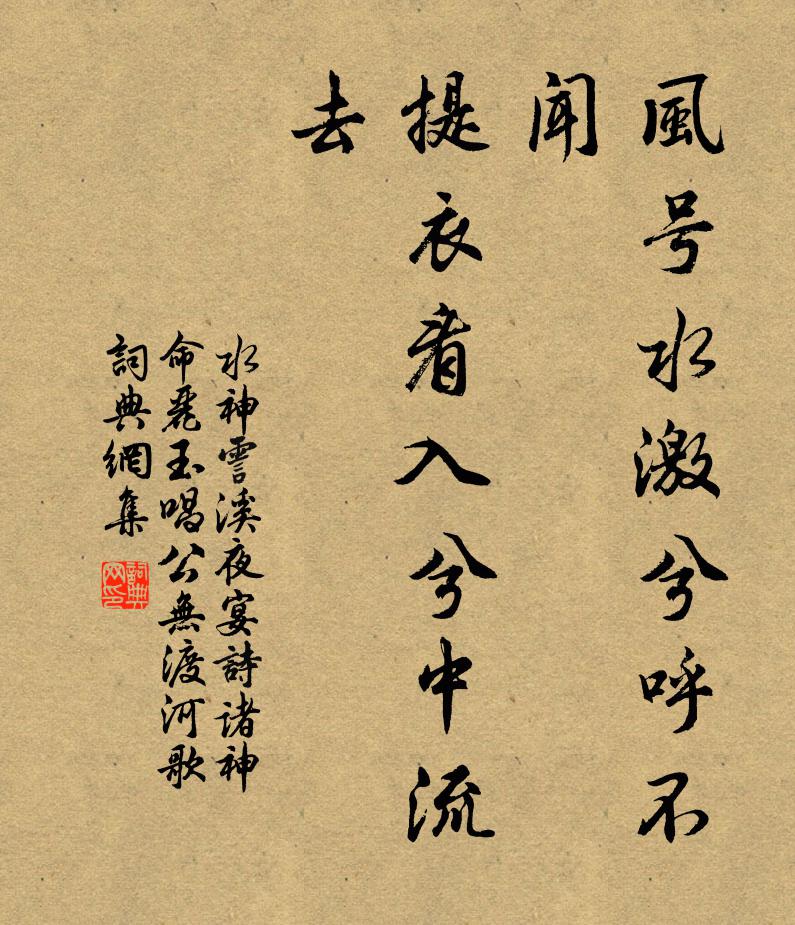 風号水激兮呼不
聞
提衣看入兮中流
去
水神雪溪夜宴詩諸神
命麗玉唱公無渡河歌
詞典網集
詞典
网印